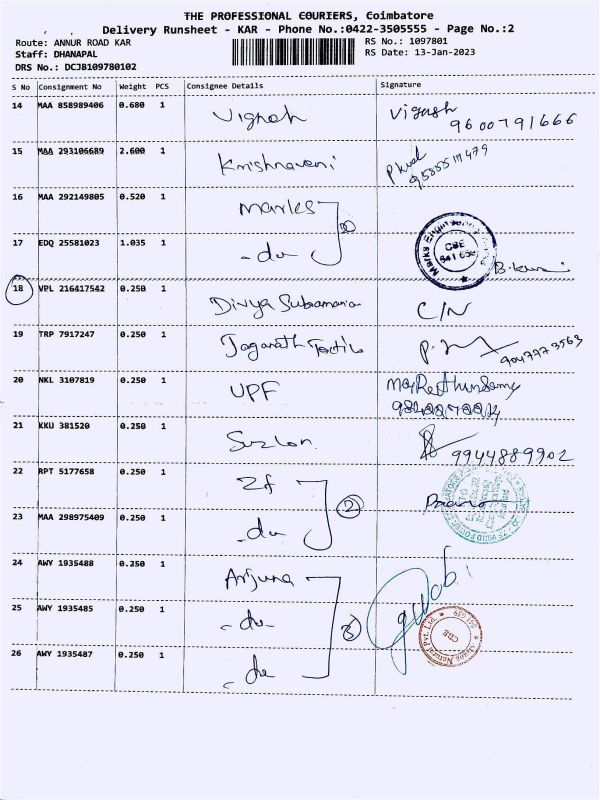 THE PROFESSIONAL COURIERS, Coimbatore
Delivery Runsheet - KAR - Phone No.:0422-3505555 - Page No.:2
Route: ANNUR ROAD KAR
RS No.: 1097801
Staff: DHANAPAL
RS Date: 13-Jan-2023
DRS No.: DCJB109780102
S No Consignment No Weight PCS Consignee Details Signature
14 MAA 858989406 0.680 1 Vignesh Vignesh
9600791666
15 MAA 293106689 2.600 1 Krishnaveni
16 MAA 292149805 0.520 1
17 EDQ 25581023 1.035 1 - do -
CBE
18 VPL 216417542 0.250 1 Divya Subamania C/N
19 TRP 7917247 0.250 1
20 NKL 3107819 0.250 1 UPF
21 KKU 381520 0.250 1 Suzlon 9944889902
22 RPT 5177658 0.250 1 Zf
2
23 MAA 298975409 0.250 1 - do -
24 AWY 1935488 0.250 1 Arjuna
25 AWY 1935485 0.250 1 - do -
3
26 AWY 1935487 0.250 1 - do